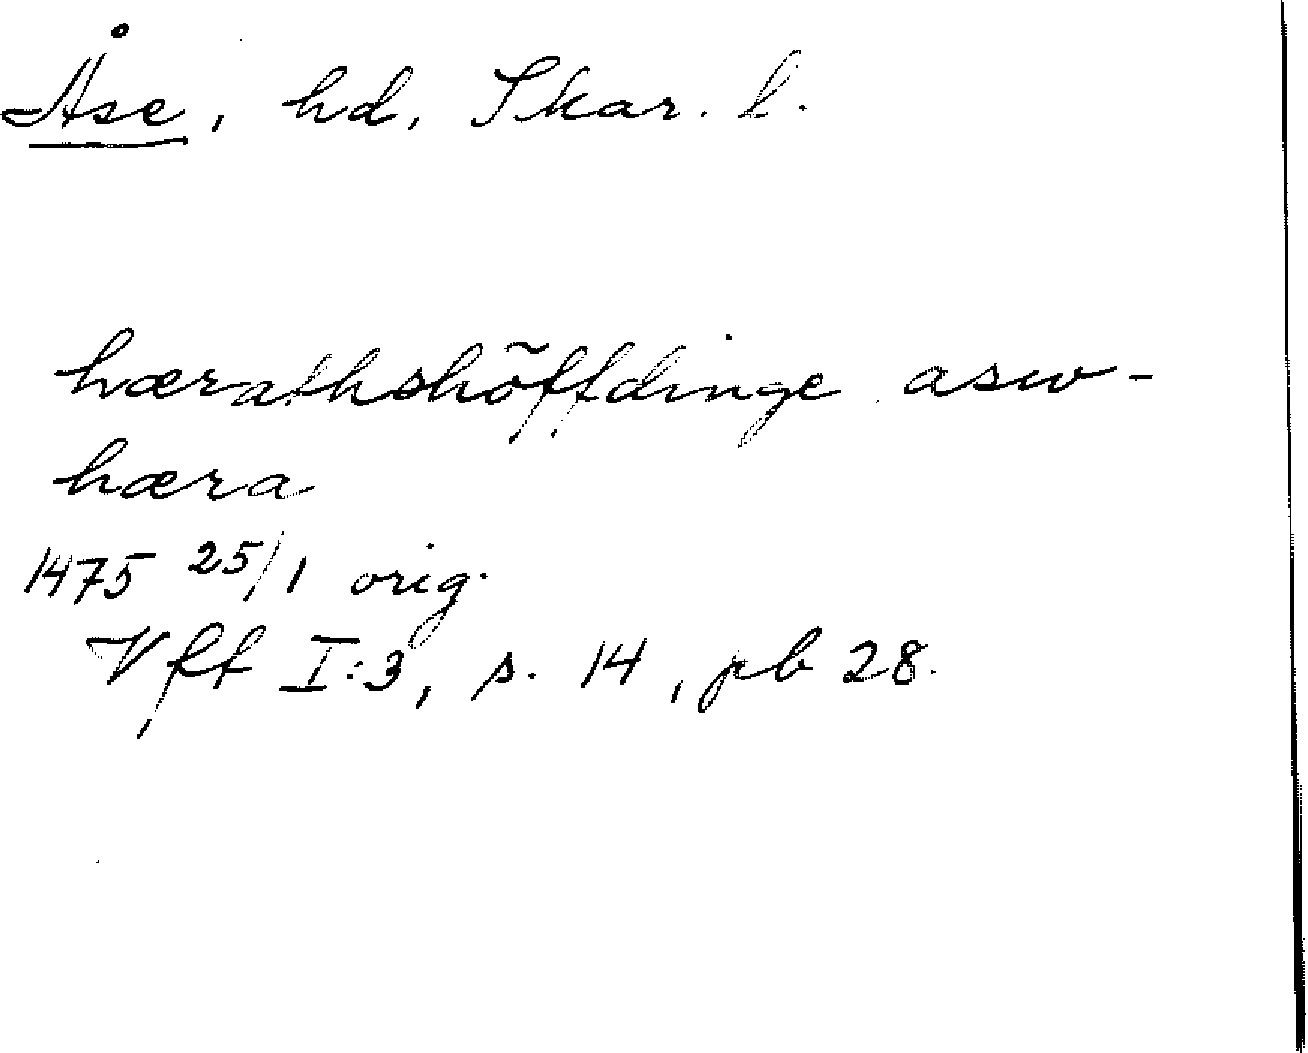 Åse, hd, Skar. l.
hærathshöffdinge asw-
hæra
1475 25/1 orig.
Vfft I:3, s. 14, pb 28.